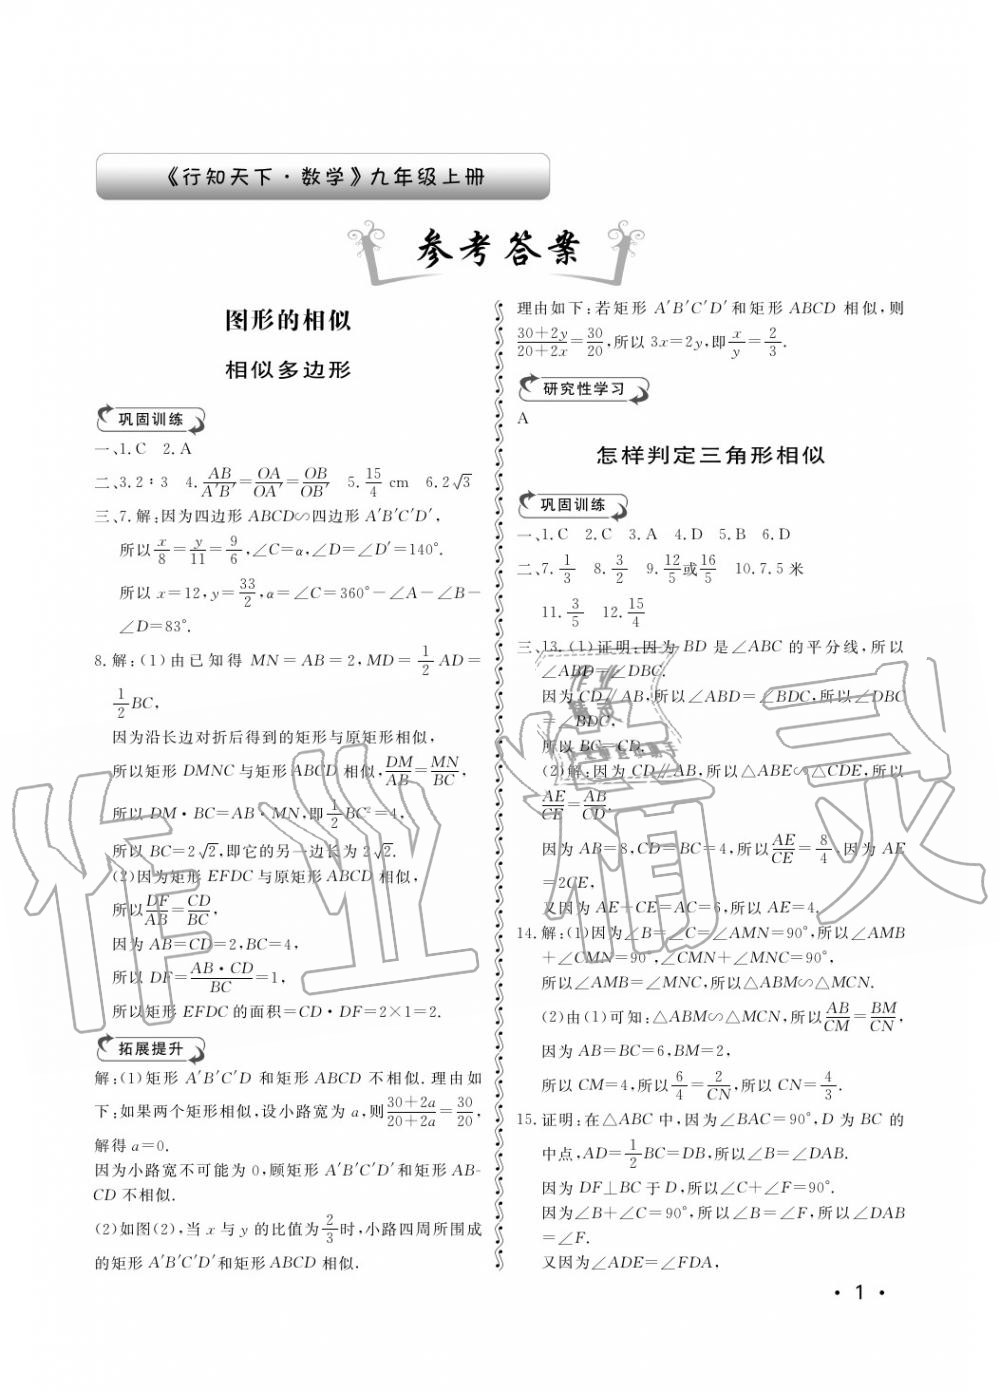 《行知天下·数学》九年级上册
参考答案
图形的相似
相似多边形
巩固训练
一、1.C 2.A
二、3.2∶3 4.AB/A′B′=OA/OA′=OB/OB′ 5.15/4 cm 6.2√3
三、7.解:因为四边形 ABCD∽四边形 A′B′C′D′,
所以x/8=y/11=9/6,∠C=α,∠D=∠D′=140°.
所以 x=12,y=33/2,α=∠C=360°-∠A-∠B-
∠D=83°.
8.解:(1)由已知得 MN=AB=2,MD=1/2AD=
1/2BC,
因为沿长边对折后得到的矩形与原矩形相似,
所以矩形 DMNC 与矩形 ABCD 相似,DM/AB=MN/BC,
所以 DM·BC=AB·MN,即1/2BC²=4,
所以 BC=2√2,即它的另一边长为 2√2.
(2)因为矩形 EFDC 与原矩形 ABCD 相似,
所以DF/AB=CD/BC,
因为 AB=CD=2,BC=4,
所以 DF=AB·CD/BC=1,
所以矩形 EFDC 的面积=CD·DF=2×1=2.
拓展提升
解:(1)矩形 A′B′C′D 和矩形 ABCD 不相似.理由如
下:如果两个矩形相似,设小路宽为 a,则30+2a/20+2a=30/20,
解得 a=0.
因为小路宽不可能为 0,顾矩形 A′B′C′D′和矩形 AB-
CD 不相似.
(2)如图(2),当 x 与 y 的比值为2/3时,小路四周所围成
的矩形 A′B′C′D′和矩形 ABCD 相似.
理由如下:若矩形 A′B′C′D′和矩形 ABCD 相似,则
30+2y/20+2x=30/20,所以 3x=2y,即x/y=2/3.
研究性学习
A
怎样判定三角形相似
巩固训练
一、1.C 2.C 3.A 4.D 5.B 6.D
二、7.1/3 8.3/2 9.12/5或16/5 10.7.5 米
11.3/5 12.15/4
三、13.(1)证明:因为 BD 是∠ABC 的平分线,所以
∠ABD=∠DBC.
因为 CD∥AB,所以∠ABD=∠BDC,所以∠DBC
=∠BDC.
所以 BC=CD.
(2)解:因为 CD∥AB,所以△ABE∽△CDE,所以
AE/CE=AB/CD,
因为 AB=8,CD=BC=4,所以AE/CE=8/4,因为 AE
=2CE,
又因为 AE+CE=AC=6,所以 AE=4.
14.解:(1)因为∠B=∠C=∠AMN=90°,所以∠AMB
+∠CMN=90°,∠CMN+∠MNC=90°,
所以∠AMB=∠MNC,所以△ABM∽△MCN.
(2)由(1)可知:△ABM∽△MCN,所以AB/CM=BM/CN,
因为 AB=BC=6,BM=2,
所以 CM=4,所以6/4=2/CN,所以 CN=4/3.
15.证明:在△ABC 中,因为∠BAC=90°,D 为 BC 的
中点,AD=1/2BC=DB,所以∠B=∠DAB.
因为 DF⊥BC 于 D,所以∠C+∠F=90°.
因为∠B+∠C=90°,所以∠B=∠F,所以∠DAB
=∠F.
又因为∠ADE=∠FDA,
·1·
作业精灵